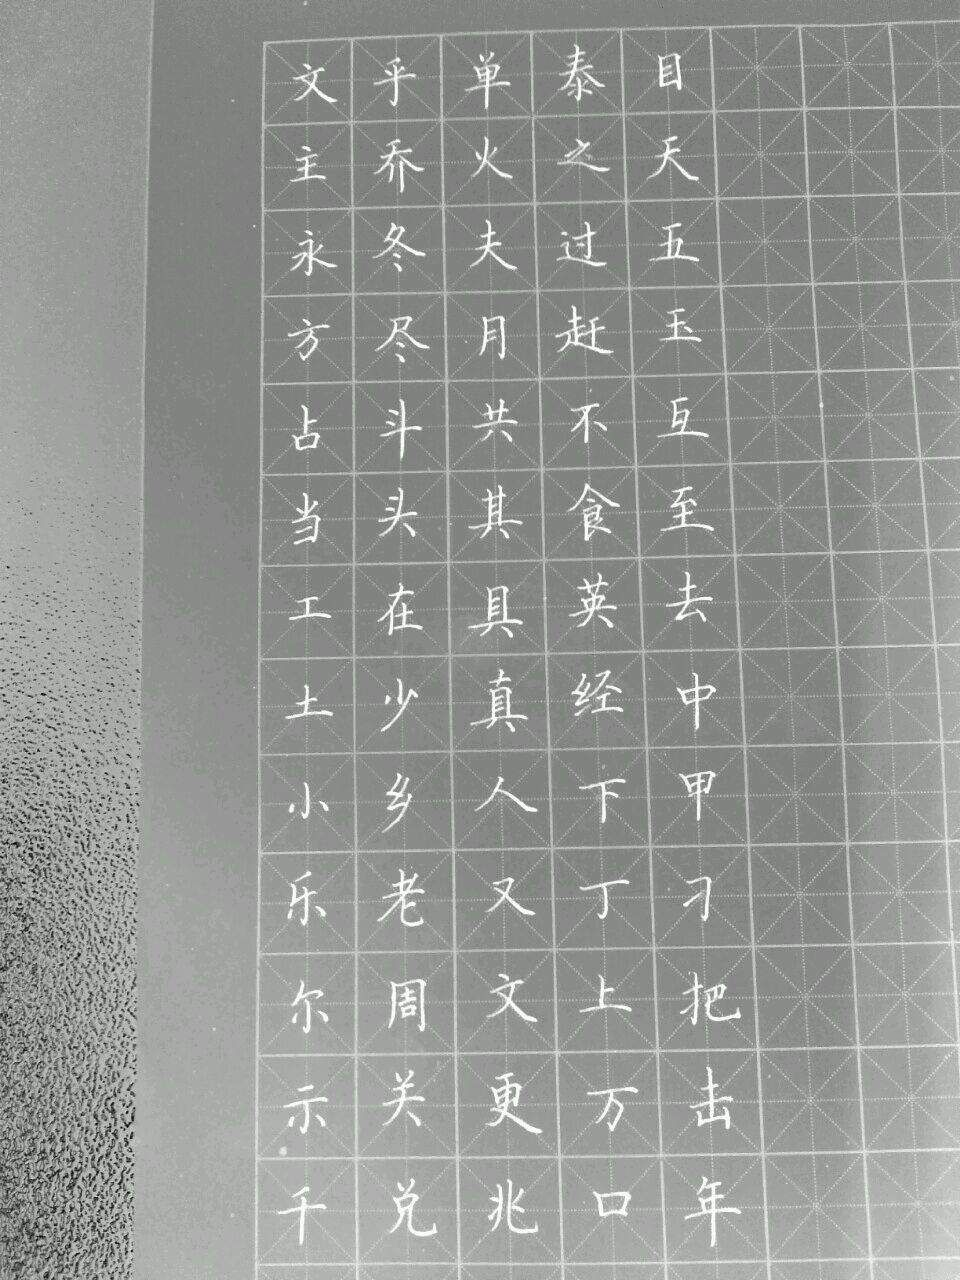 文乎单泰目
主乔火之天
永冬夫过五
方尽月赶玉
占斗共不互
当头其食至
工在具英去
土少真经中
小乡人下甲
乐老又丁刁
尔周文上把
示关更万击
千兑兆口年